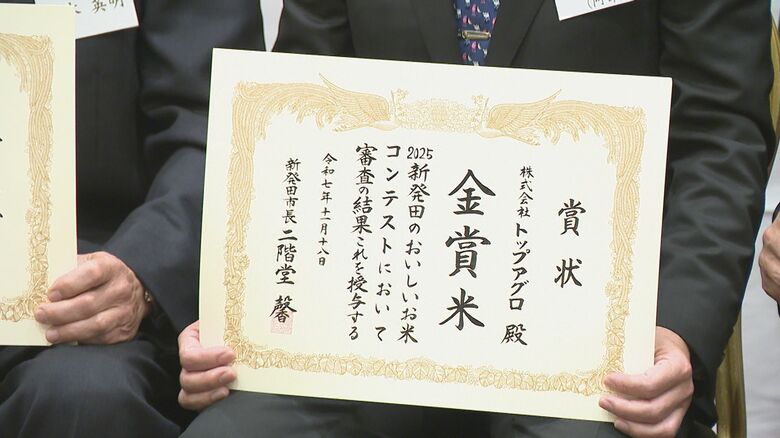 賞状
株式会社トップアグロ 殿
金賞米
2025新発田のおいしいお米
コンテストにおいて
審査の結果これを授与する
令和七年十一月十八日
新発田市長 二階堂 馨
英明